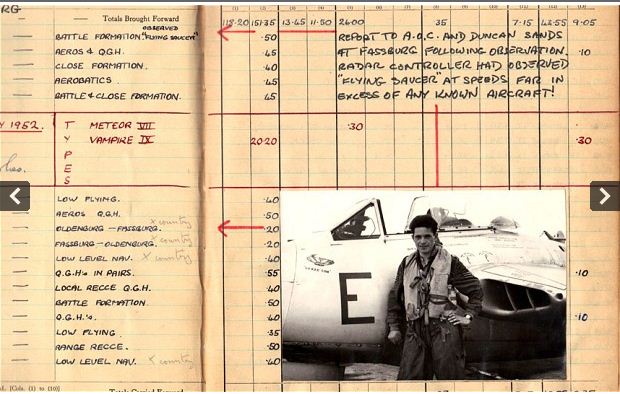 RG-
(1) (2) (3) (4) (5) (6) (7) (8) (9) (10) (11) (12) (13)
Totals Brought Forward 118·20 151·35 13·45 11·50 26·00 35 7·15 42·55 9·05
OBSERVED
BATTLE FORMATION. "FLYING SAUCER" ·50 REPORT TO A.O.C. AND DUNCAN SANDS
AEROS & QGH. ·45 AT FASSBURG FOLLOWING OBSERVATION. ·10
CLOSE FORMATION. ·40 RADAR CONTROLLER HAD OBSERVED
AEROBATICS. ·45 "FLYING SAUCER" AT SPEEDS FAR IN
BATTLE & CLOSE FORMATION. ·45 EXCESS OF ANY KNOWN AIRCRAFT!
Y 1952. T METEOR VII ·30
Y VAMPIRE IX 20·20 ·30
P
E
S
LOW FLYING. ·40
AEROS Q.G.H. ·50
OLDENBURG — FASSBURG. x country ·20
FASSBURG — OLDENBURG. x country ·20
LOW LEVEL NAV. x country ·40
Q.G.H's IN PAIRS. ·55 ·10
LOCAL RECCE Q.G.H. ·40
BATTLE FORMATION ·40
Q.G.H.'s. ·40 ·10
LOW FLYING. ·35
RANGE RECCE. ·50
LOW LEVEL NAV. x country ·40
E
[Cols. (1) to (10)]
Totals Carried Forward